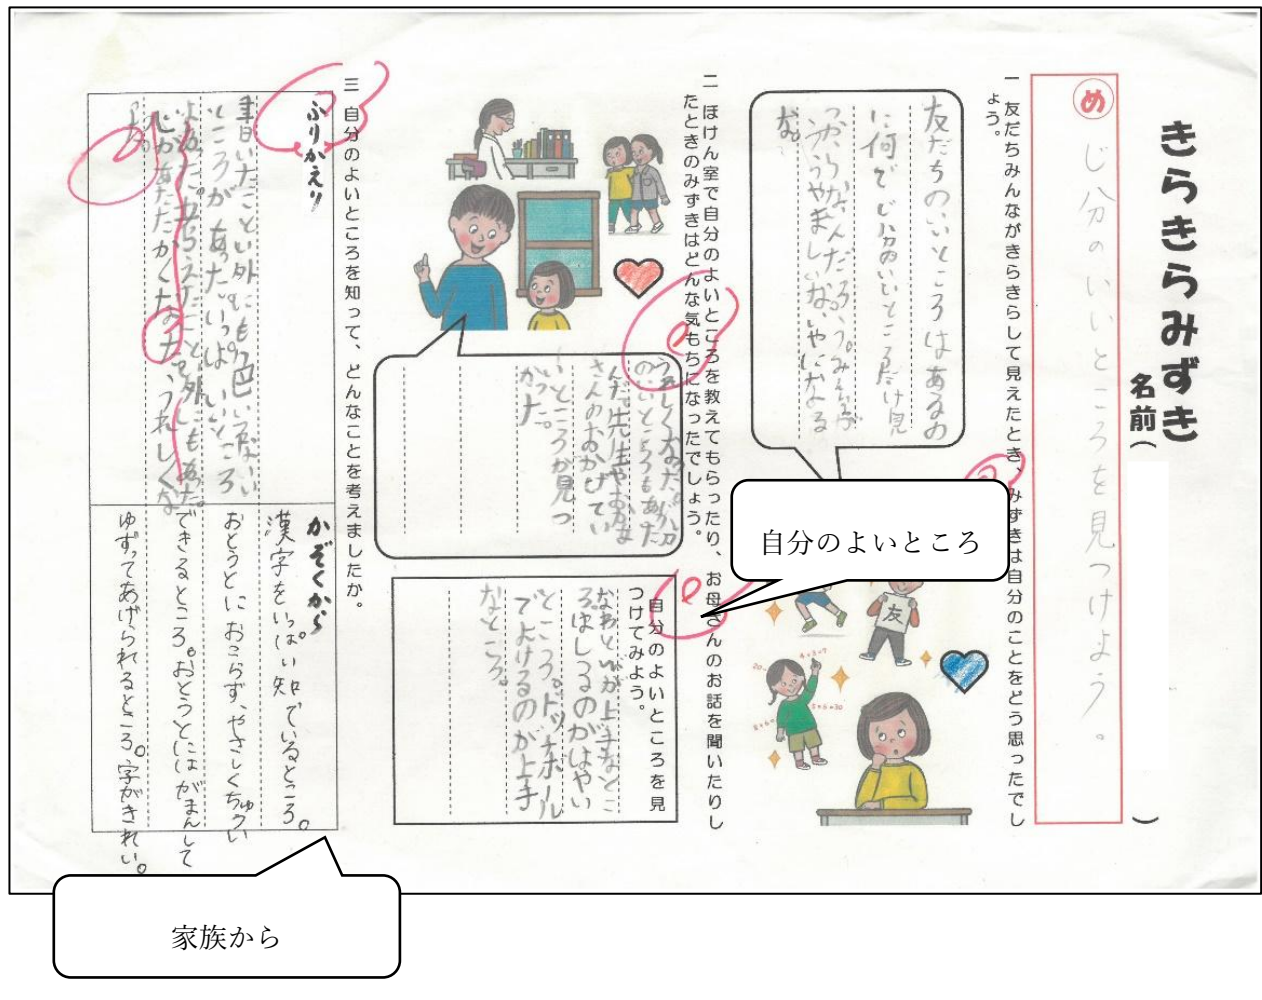 きらきらみずき
名前（　）
め
じ分のいいところを見つけよう。
一 友だちみんながきらきらして見えたとき、みずきは自分のことをどう思ったでし
ょう。
友だちのいいところはあるの
に何でじ分のいいところだけ見
つからないんだろう。みんなが
うらやましいな。いやになる
な。
友
二 ほけん室で自分のよいところを教えてもらったり、お母さんのお話を聞いたりし
たときのみずきはどんな気もちになったでしょう。
うれしくなった。じ分
のいいところもあった
んだ。先生やお母
さんのおかげでい
いところが見つ
かった。
自分のよいところ
自分のよいところを見
つけてみよう。
が上手なとこ
ろ。はしるのがはやい
ところ。ドッヂボール
でよけるのが上手
なところ。
三 自分のよいところを知って、どんなことを考えましたか。
ふりかえり
書いたこといがいにも
ところがあった。いっぱいいいところ
よかった。
心があたたかくなった。うれしくな
った。
かぞくから
漢字をいっぱい知っているところ。
おとうとにおこらず、やさしくちゅうい
できるところ。おとうとにはがまんして
ゆずってあげられるところ。字がきれい。
家族から